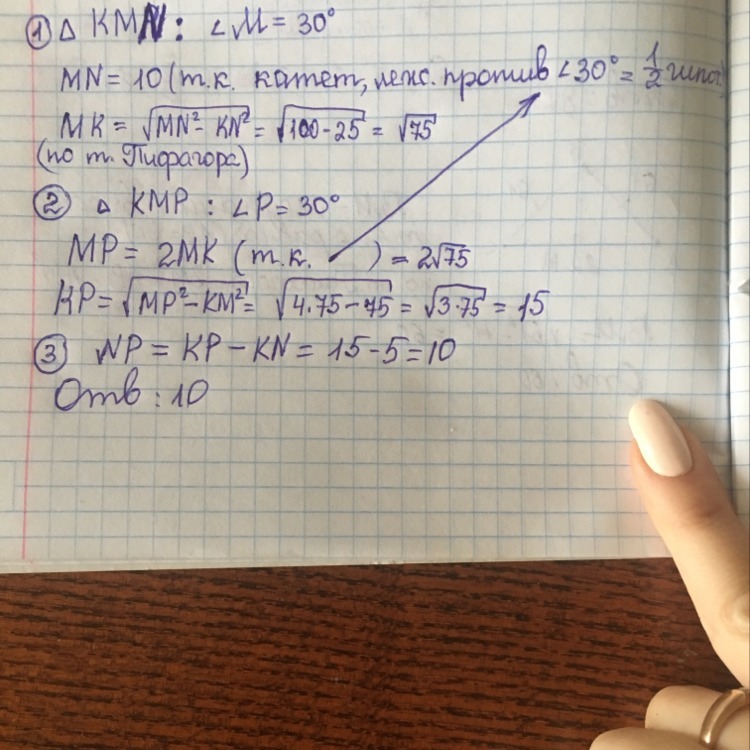 ① △ KMN : ∠M = 30°
MN = 10 (т.к. катет, леж. против ∠30° = 1/2 гипот.)
MK = √(MN² - KN²) = √(100 - 25) = √75
(по т. Пифагора)
② △ KMP : ∠P = 30°
MP = 2MK (т.к. ) = 2√75
KP = √(MP² - KM²) = √(4.75 - 75) = √(3.75) = 15
③ NP = KP - KN = 15 - 5 = 10
Отв : 10